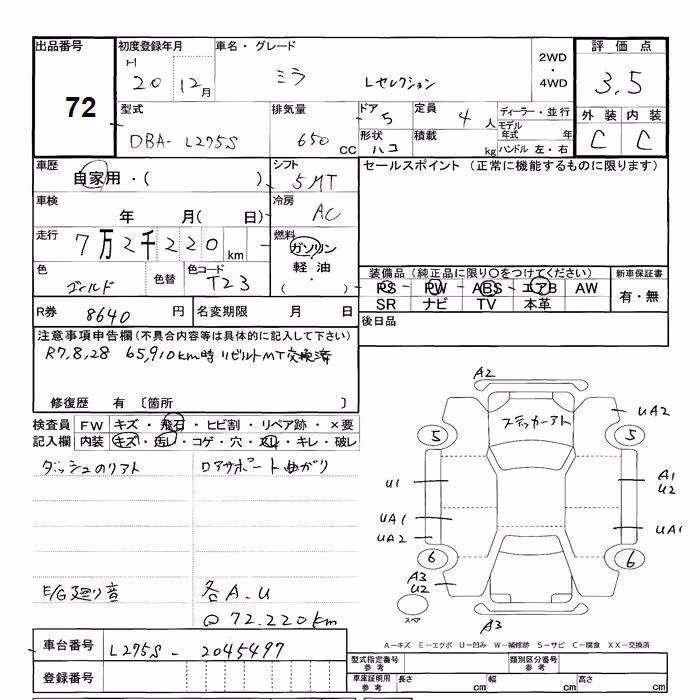 出品番号
72
初度登録年月
H
20 12月
車名・グレード
ミラ Lセレクション
2WD
・
4WD
評価点
3,5
外装 内装
C C
型式
DBA- L275S
排気量
650 CC
ドア
5
定員
4 人
形状
ハコ
積載
kg
ディーラー・並行
モデル年式 年
ハンドル 左・右
車歴
自家用・( )
シフト
5MT
セールスポイント (正常に機能するものに限ります)
車検
年 月( 日)
冷房
AC
走行
7万2千220km
燃料
ガソリン
・
軽油
・
( )
色
ゴールド
色替
色コード
T23
装備品(純正品に限り〇をつけてください)
PS PW ABS エアB AW
SR ナビ TV 本革
新車保証書
有・無
R券 8640 円
名変期限 月 日
後日品
注意事項申告欄(不具合内容等は具体的に記入して下さい)
R7,8,28 65,910km時 リビルトMT交換済
修復歴 有 〔箇所 〕
検査員 FW キズ・飛石・ヒビ割・リペア跡・×要
記入欄 内装 キズ・汚レ・コゲ・穴・スレ・キレ・破レ
ダッシュのリアト
ロアサポート曲がり
E/G廻り音
各A.U
@72.220km
A2
ステッカーアト
UA2
5 5
U1
A1
U2
UA1
UA2
UA1
6 6
A3
U2
スペア
A3
車台番号 L275S - 2045497
登録番号
A-キズ E-エクボ U-凹み W-補修跡 S-サビ C-腐食 XX-交換済
型式指定番号
参考
類別区分番号
参考
車庫証明用
参考
長さ cm 幅 cm 高さ cm